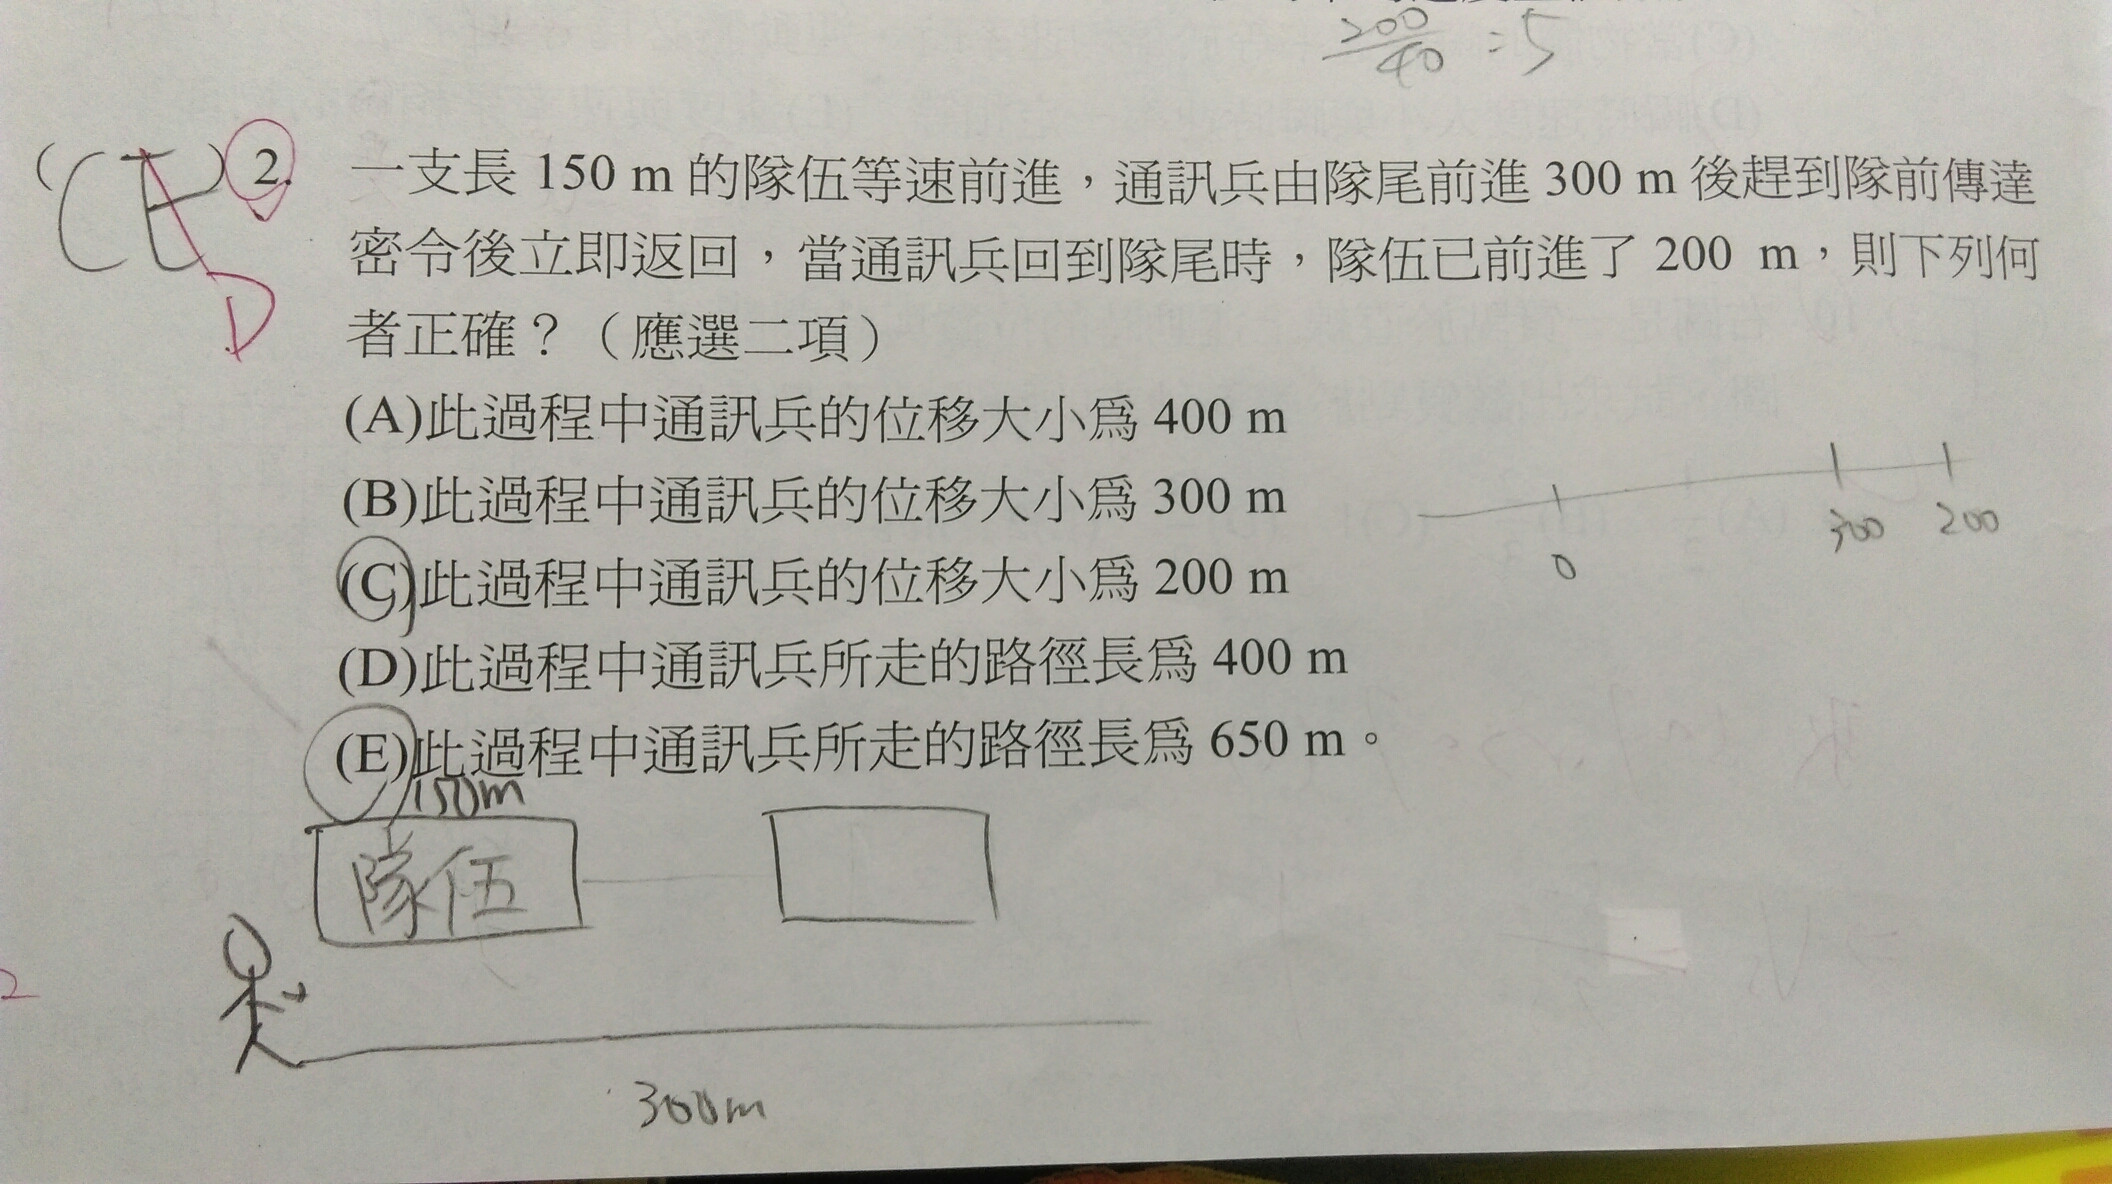 200/40 = 5
(CE) 2. 一支長 150 m 的隊伍等速前進，通訊兵由隊尾前進 300 m 後趕到隊前傳達
D 密令後立即返回，當通訊兵回到隊尾時，隊伍已前進了 200 m，則下列何
者正確？（應選二項）
(A)此過程中通訊兵的位移大小爲 400 m
(B)此過程中通訊兵的位移大小爲 300 m
0 300 200
(C)此過程中通訊兵的位移大小爲 200 m
(D)此過程中通訊兵所走的路徑長爲 400 m
(E)此過程中通訊兵所走的路徑長爲 650 m。
150m
隊伍
300m